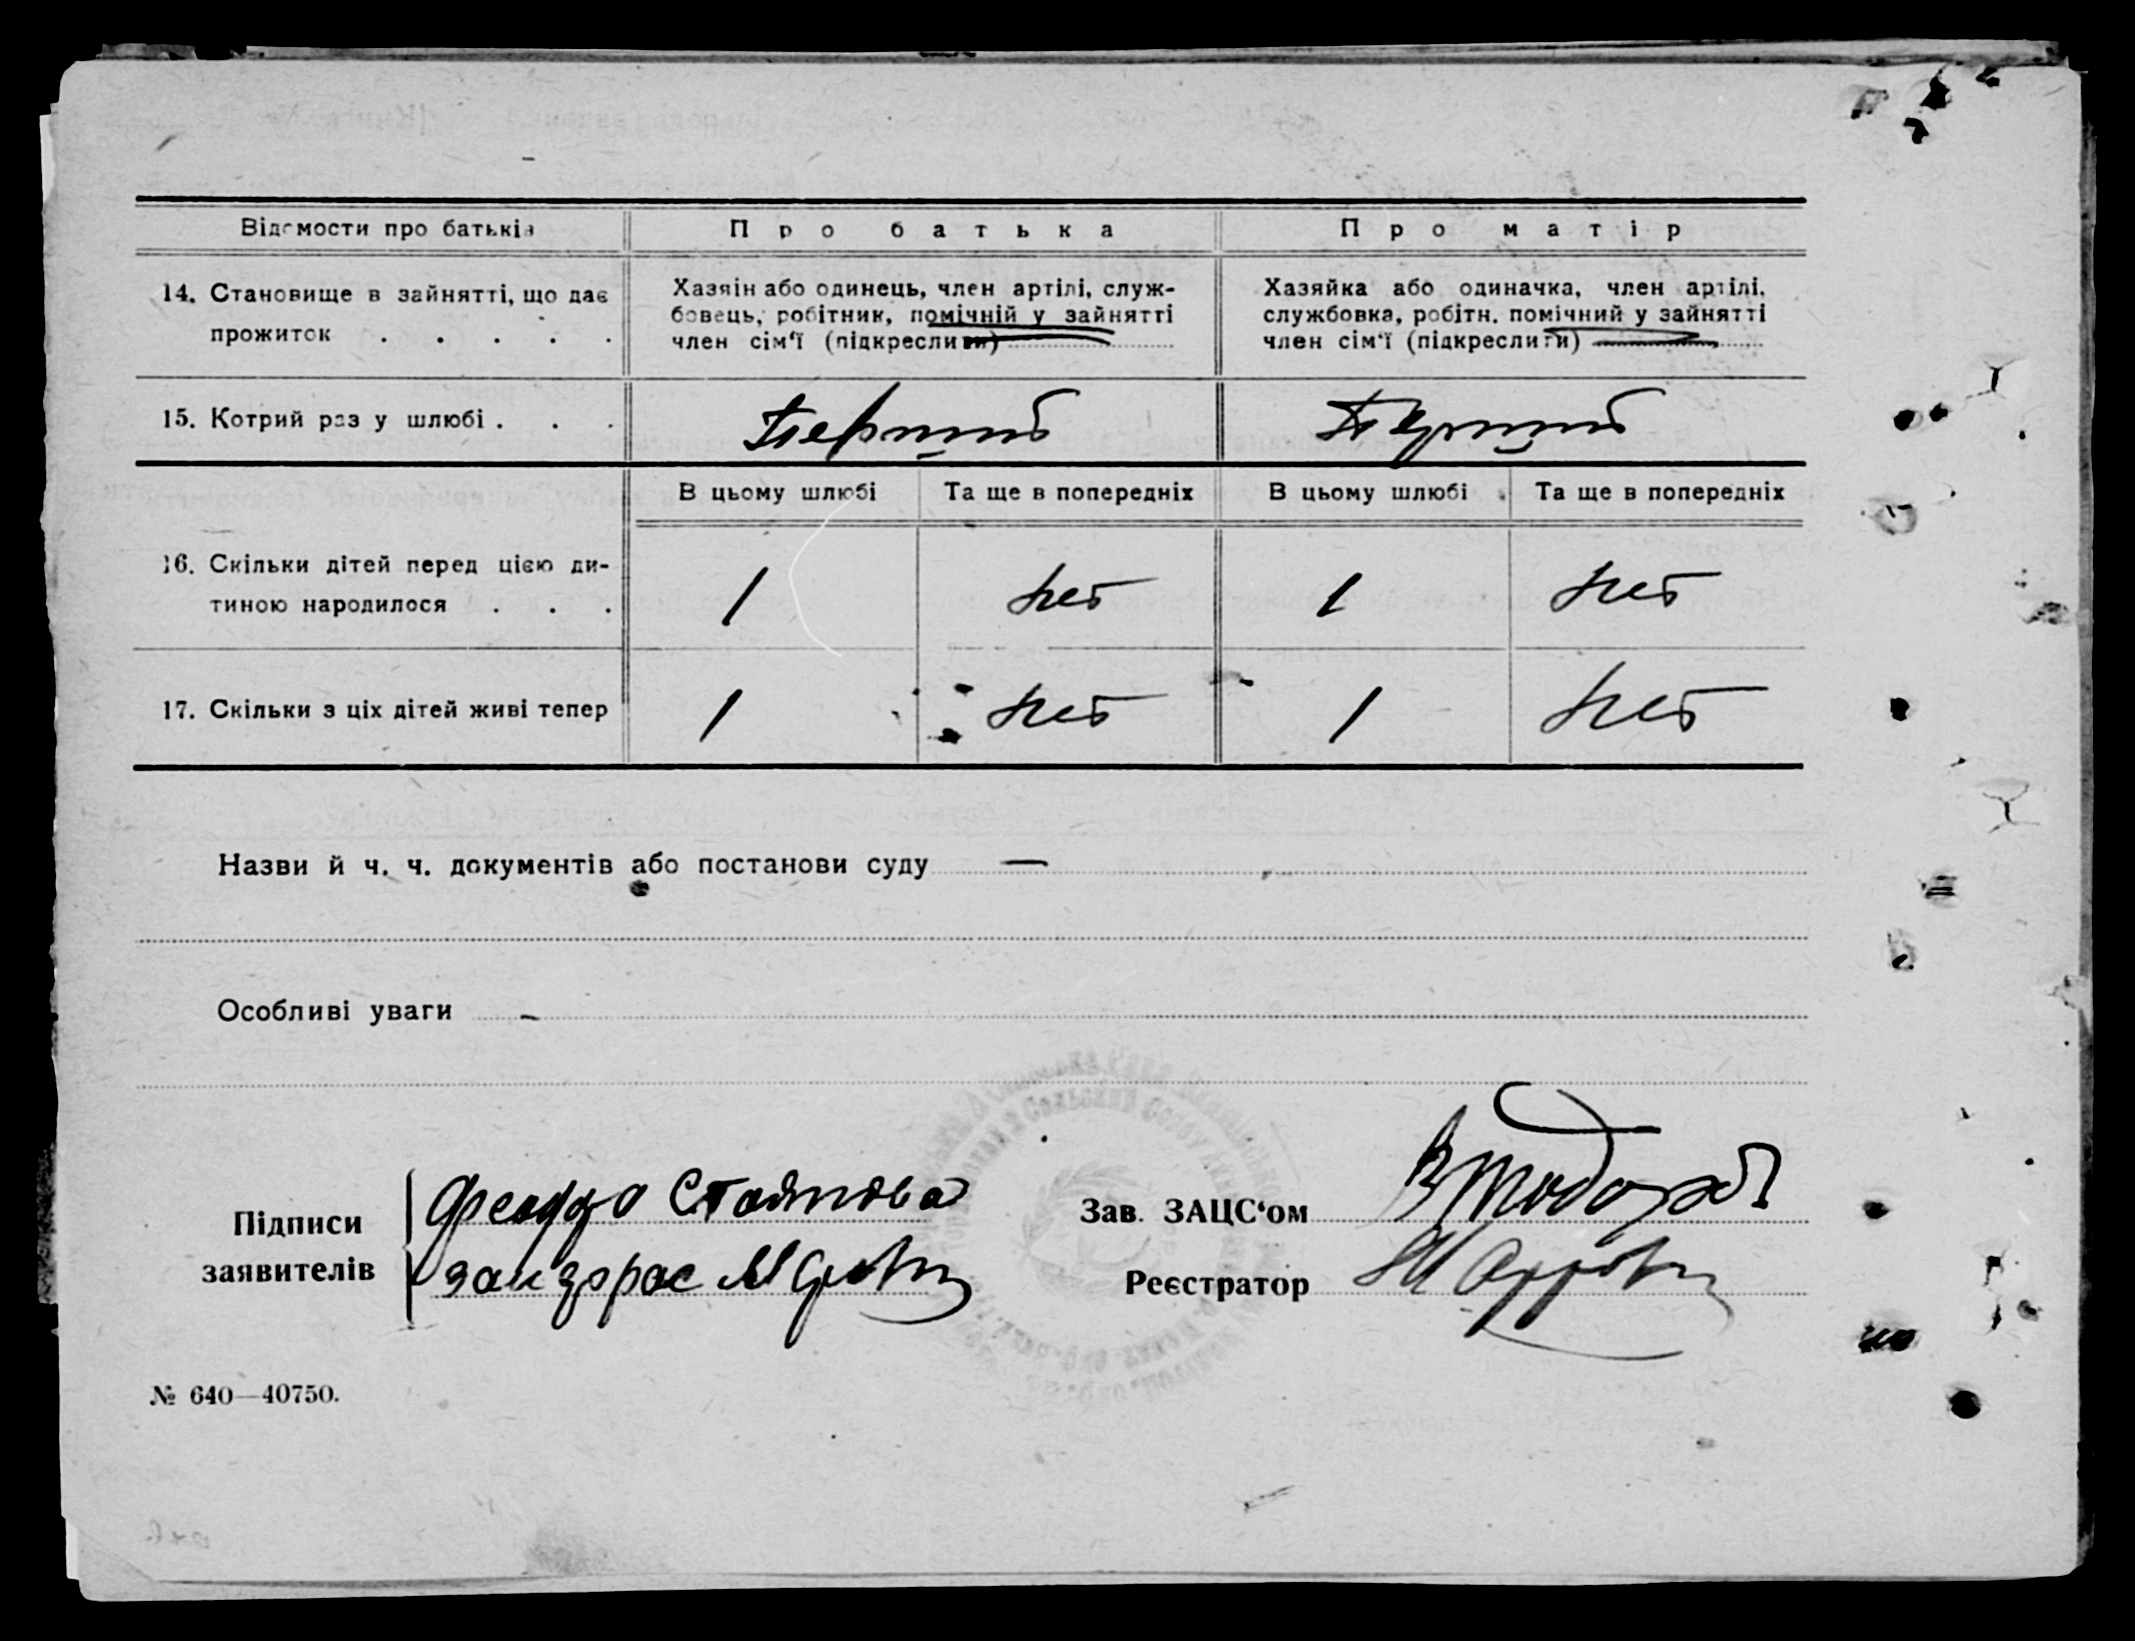 Відомости про батьків
Про батька
Про матір
14. Становище в зайнятті, що дає
прожиток . . . . .
Хазяїн або одинець, член артілі, служ-
бовець, робітник, помічній у зайнятті
член сім'ї (підкреслити)
Хазяйка або одиначка, член артілі,
службовка, робітн. помічний у зайнятті
член сім'ї (підкреслити)
15. Котрий раз у шлюбі . . .
Перший
Перший
В цьому шлюбі
Та ще в попередніх
В цьому шлюбі
Та ще в попередніх
16. Скільки дітей перед цією ди-
тиною народилося . . .
1
нет
1
нет
17. Скільки з ціх дітей живі тепер
1
нет
1
нет
Назви й ч. ч. документів або постанови суду —
Особливі уваги –
Підписи
заявителів
Стоянова
Зав. ЗАЦС‘ом
Реєстратор
№ 640—40750.